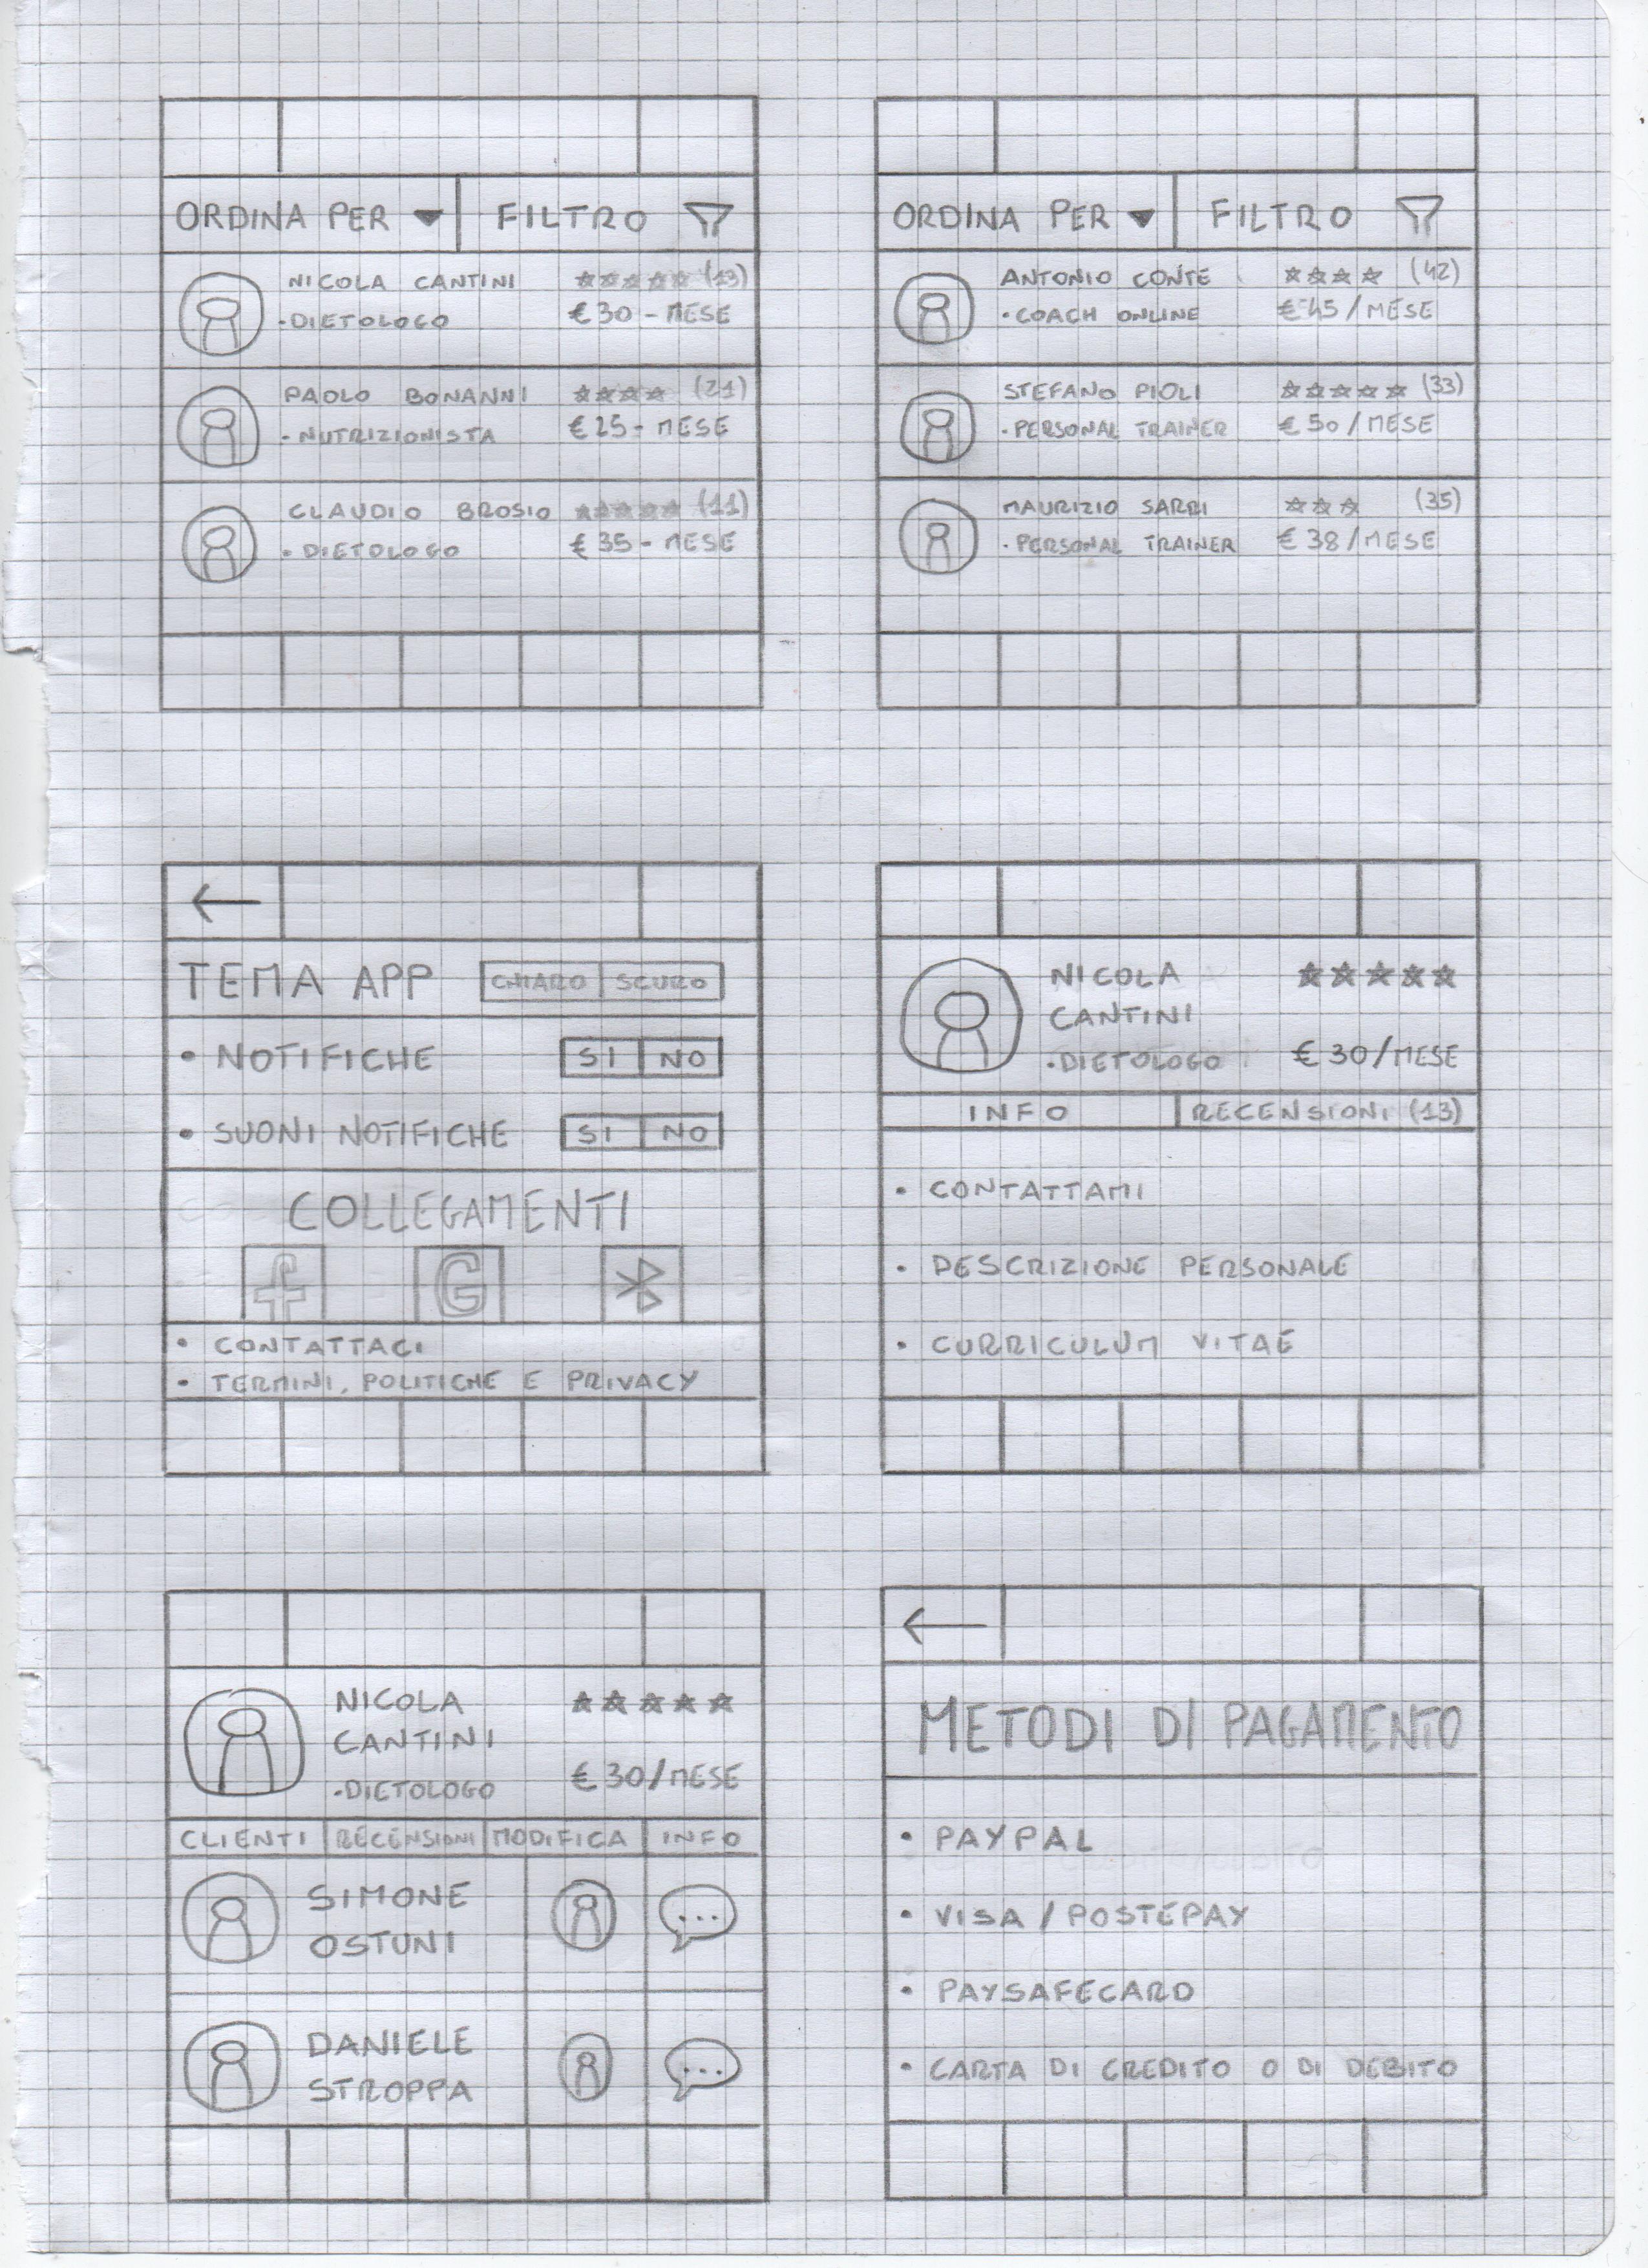 ORDINA PER FILTRO
NICOLA CANTINI (13)
•DIETOLOGO €30-MESE
PAOLO BONANNI (21)
•NUTRIZIONISTA €25-MESE
CLAUDIO BROSIO (11)
•DIETOLOGO €35-MESE
ORDINA PER FILTRO
ANTONIO CONTE (42)
•COACH ONLINE €45/MESE
STEFANO PIOLI (33)
•PERSONAL TRAINER €50/MESE
MAURIZIO SARRI (35)
•PERSONAL TRAINER €38/MESE
TEMA APP CHIARO SCURO
• NOTIFICHE SI NO
• SUONI NOTIFICHE SI NO
COLLEGAMENTI
f G
• CONTATTACI
• TERMINI, POLITICHE E PRIVACY
NICOLA
CANTINI
•DIETOLOGO €30/MESE
INFO RECENSIONI (13)
• CONTATTAMI
• DESCRIZIONE PERSONALE
• CURRICULUM VITAE
NICOLA
CANTINI
•DIETOLOGO €30/MESE
CLIENTI RECENSIONI MODIFICA INFO
SIMONE
OSTUNI
DANIELE
STROPPA
METODI DI PAGAMENTO
• PAYPAL
• VISA / POSTEPAY
• PAYSAFECARD
• CARTA DI CREDITO O DI DEBITO